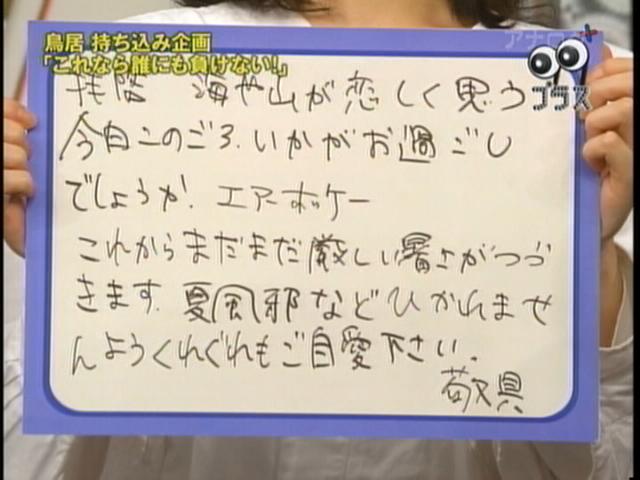 鳥居 持ち込み企画
「これなら誰にも負けない!」
アナログ
プラス
拝啓 海や山が恋しく思う
今日このごろ、いかがお過ごし
でしょうか. エアーホッケー
これからまだまだ厳しい暑さがつづ
きます. 夏風邪などひかれませ
んようくれぐれもご自愛下さい.
敬具